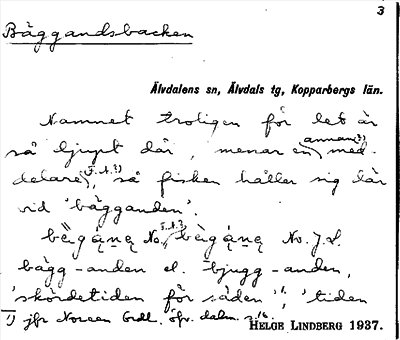 3
Bäggandsbacken
Älvdalens sn, Älvdals tg, Kopparbergs län.
Namnet troligen för det är
så ljupt där, menar en annan¹) med-
delare (F.A.?), så fisken håller sig där
vid 'bägganden'.
No. F.A.?) No. J.L.
bägg-anden el. bjugg-anden,
'skördetiden för säden', 'tiden
¹) jfr Noreen Ordl. öfv. dalm. s. 16.
HELGE LINDBERG 1937.